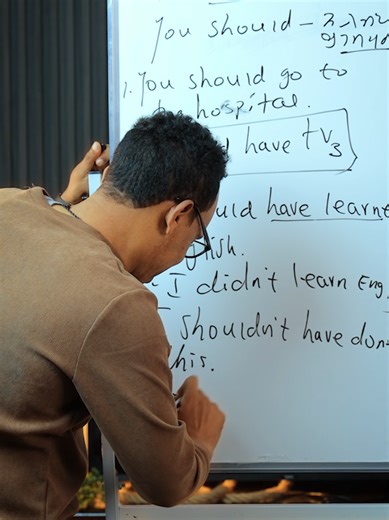 You should –
1. You should go to
hospital.
have + V3
uld have learne
lish.
- I didn't learn Eng
shouldn't have don
his.